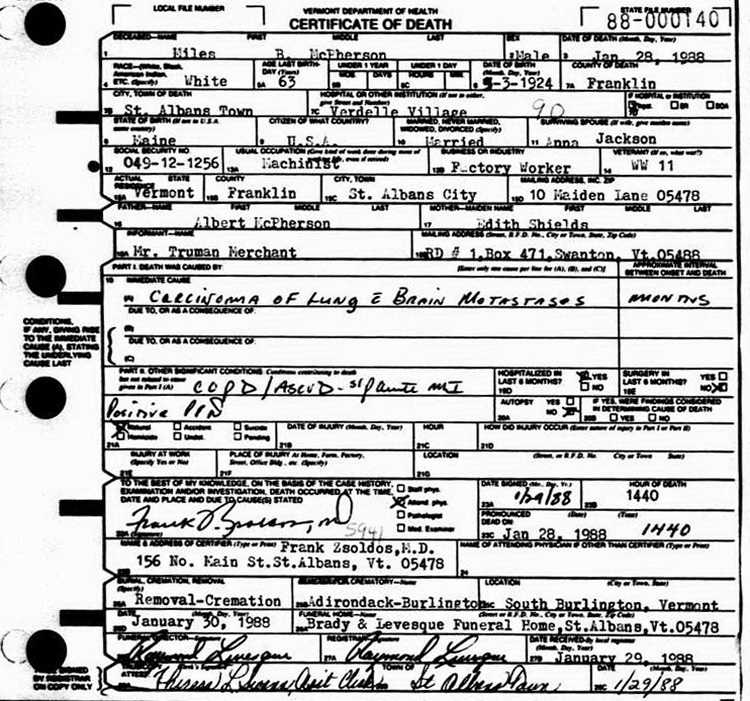 LOCAL FILE NUMBER VERMONT DEPARTMENT OF HEALTH STATE FILE NUMBER
CERTIFICATE OF DEATH 88-000140
DECEASED—NAME FIRST MIDDLE LAST SEX DATE OF DEATH (Month, Day, Year)
1 Miles B. McPherson 2 Male 3 Jan. 28, 1988
RACE—White, Black, American Indian, ETC. (Specify) AGE LAST BIRTHDAY (Years) UNDER 1 YEAR UNDER 1 DAY DATE OF BIRTH (Month, Day, Year) COUNTY OF DEATH
MOS DAYS HOURS MIN
4 White 5A 63 -3-1924 Franklin
CITY, TOWN OF DEATH HOSPITAL OR OTHER INSTITUTION (If not in either, give Street and Number) IF HOSPITAL or INSTITUTION
St. Albans Town 7C Verdelle Village 90 ER DOA
STATE OF BIRTH (If not in U.S.A. name country) CITIZEN OF WHAT COUNTRY? MARRIED, NEVER MARRIED, WIDOWED, DIVORCED (Specify) SURVIVING SPOUSE (If wife, give maiden name)
8 Maine 9 U.S.A. 10 Married 11 Anna Jackson
SOCIAL SECURITY NO. USUAL OCCUPATION (Give kind of work done during most of working life, even if retired) BUSINESS OR INDUSTRY VETERAN (If so, what war?)
12 049-12-1256 13A Machinist 13B Factory Worker 14 WW 11
ACTUAL RESIDENCE STATE COUNTY CITY, TOWN MAILING ADDRESS, INC. ZIP
15A Vermont 15B Franklin 15C St. Albans City 15D 10 Maiden Lane 05478
FATHER—NAME FIRST MIDDLE LAST MOTHER—MAIDEN NAME FIRST MIDDLE LAST
16 Albert McPherson 17 Edith Shields
INFORMANT—NAME MAILING ADDRESS (Street, R.F.D. No., City or Town, State, Zip Code)
18A Mr. Truman Merchant 18B RD # 1,Box 471,Swanton, Vt.05488
PART I. DEATH WAS CAUSED BY (Enter only one cause per line for (A), (B), and (C)) APPROXIMATE INTERVAL BETWEEN ONSET AND DEATH
19 IMMEDIATE CAUSE
(A) Carcinoma of Lung c Brain Motastases months
DUE TO, OR AS A CONSEQUENCE OF:
CONDITIONS, IF ANY, GIVING RISE TO THE IMMEDIATE CAUSE (A), STATING THE UNDERLYING CAUSE LAST
(B)
DUE TO, OR AS A CONSEQUENCE OF:
(C)
PART II. OTHER SIGNIFICANT CONDITIONS Conditions contributing to death but not related to cause given in Part I (A) HOSPITALIZED IN LAST 6 MONTHS? YES NO SURGERY IN LAST 6 MONTHS? YES NO
COPD/ASCVD - s/p acute MI 19D 19E
Positive PPD AUTOPSY YES NO 20A IF YES, WERE FINDINGS CONSIDERED IN DETERMINING CAUSE OF DEATH 20B YES NO
Natural Accident Suicide DATE OF INJURY (Month, Day, Year) HOUR HOW DID INJURY OCCUR (Enter nature of injury in Part I or Part II)
Homicide Undet. Pending
21A 21B 21C 21D
INJURY AT WORK (Specify Yes or No) PLACE OF INJURY At Home, Farm, Factory, Street, Office Bldg., etc. (Specify) LOCATION (Street, or R.F.D. No. City or Town State)
21E 21F 21G
TO THE BEST OF MY KNOWLEDGE, ON THE BASIS OF THE CASE HISTORY, EXAMINATION AND/OR INVESTIGATION, DEATH OCCURRED AT THE TIME, DATE AND PLACE AND DUE TO CAUSE(S) STATED Staff phys. DATE SIGNED (Mo., Day, Yr.) HOUR OF DEATH
Attend. phys. 23A 1/29/88 23B 1440
Frank J Zsoldos, MD 5941 Pathologist PRONOUNCED DEAD ON (Date) (Year) (Time)
22A (Signature) Med. Examiner 23C Jan 28, 1988 1440
NAME & ADDRESS OF CERTIFIER (Type or Print) Frank Zsoldos,M.D. NAME OF ATTENDING PHYSICIAN IF OTHER THAN CERTIFIER (Type or Print)
156 No. Main St.St.Albans, Vt. 05478 24
BURIAL, CREMATION, REMOVAL (Specify) CEMETERY OR CREMATORY—Name LOCATION (City or Town, State)
25A Removal-Cremation 25B Adirondack-Burlington 25C South Burlington, Vermont
DATE (Month, Day, Year) FUNERAL HOME—Name (Street or R.F.D. No., City or Town, State, Zip Code)
25D January 30, 1988 26A Brady & Levesque Funeral Home,St.Albans,Vt.05478
FUNERAL DIRECTOR—Signature REGISTRAR (Signature) DATE RECEIVED by local registrar (Month, Day, Year)
Raymond Levesque 27A Raymond Levesque 27B January 29, 1988
SIGNED BY REGISTRAR ON COPY ONLY
ATTEST TOWN OF DATE
Asst Clerk St Albans Town 28C 1/29/88